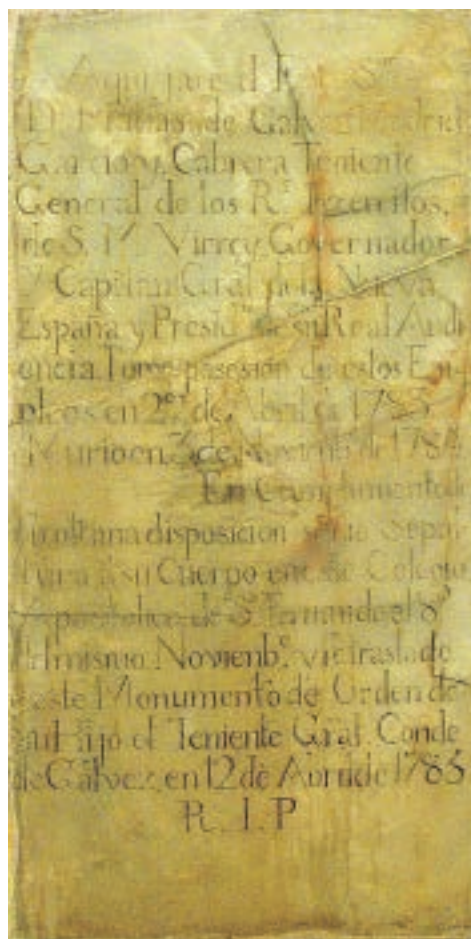 Aqui jace el Exᵐᵒ Sᵒʳ
Dⁿ Matias de Galvez Madrid
Garcia y Cabrera Teniente
General de los Rˢ Exercitos,
de S. M. Virrey Governador
Y Capitan Gral de la Nueva
España y Presidᵗᵉ de su Real Audi
encia. Tomo pasesion de estos Em
pleos en 29 de Abril de 1783
Murio en 3 de Noviembᵉ de 1784
En Cumplimento de
su ultima disposicion se le Sepul
tura a su Cuerpo en este Colegio
Apostolico de Sⁿ Fernando el 8º
del mismo Novienbᵉ. y le traslade
a este Monumento de Orden de
su Hijo el Teniente Gral. Conde
de Galvez, en 12 de Abril de 1785
R. I. P